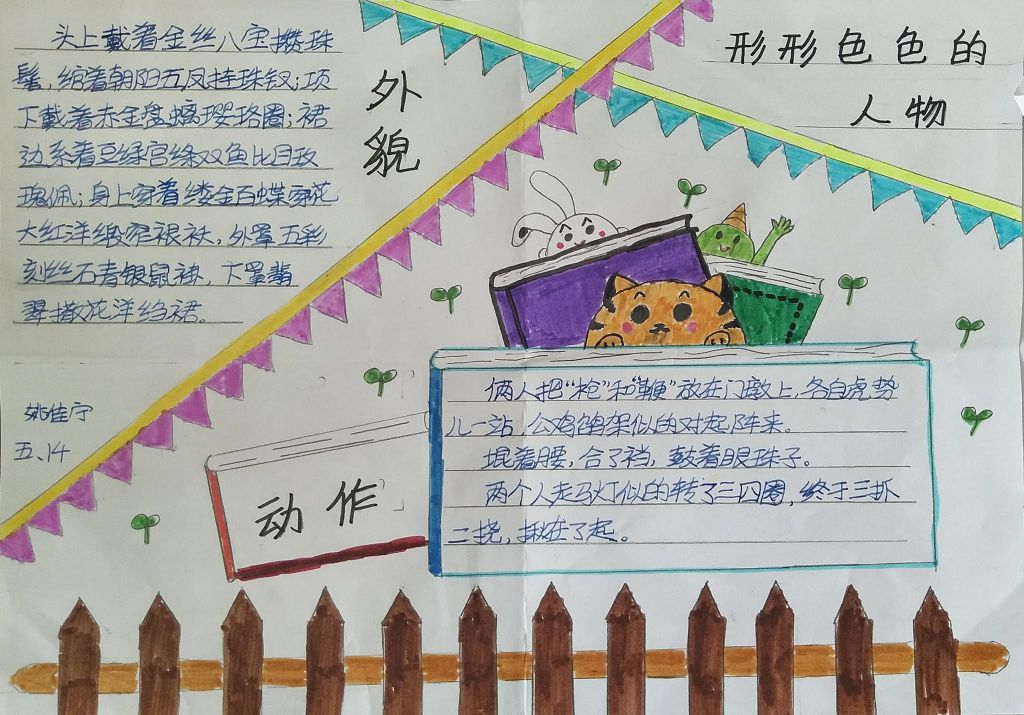 形形色色的
人物
外
貌
头上戴着金丝八宝攒珠
髻,绾着朝阳五凤挂珠钗;项
下戴着赤金盘螭璎珞圈;裙
边系着豆绿宫绦双鱼比目玫
瑰佩;身上穿着缕金百蝶穿花
大红洋缎窄裉袄,外罩五彩
刻丝石青银鼠褂,下罩翡
翠撒花洋绉裙。
姚佳宁
五、14
动作
俩人把“枪”和“鞭”放在门墩上,各自虎势
儿一站,公鸡鹐架似的对起阵来。
堒着腰,合了裆,鼓着眼珠子。
两个人走马灯似的转了三四圈,终于三抓
二挠,揪在了起。